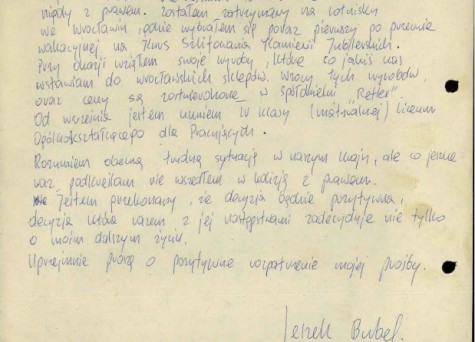 nigdy z prawem. Zostałem zatrzymany na lotnisku
we Wrocławiu, gdzie wybrałem się po raz pierwszy po przerwie
wakacyjnej na Kurs Szlifowania Kamieni Jubilerskich.
Przy okazji wziąłem swoje wyroby, które co jakiś czas
wstawiam do wrocławskich sklepów. Wzory tych wyrobów,
oraz ceny są zatwierdzone w spółdzielni "Refler".
Od września jestem uczniem IV klasy (maturalnej) Liceum
Ogólnokształcącego dla Pracujących.
Rozumiem obecną trudną sytuację w naszym kraju, ale co jeszcze
raz podkreślam nie wszedłem w kolizję z prawem.
Jestem przekonany, że decyzja będzie pozytywna,
decyzja która razem z jej następstwami zadecyduje nie tylko
o moim dalszym życiu.
Uprzejmie proszę o pozytywne rozpatrzenie mojej prośby.
Leszek Bubel.